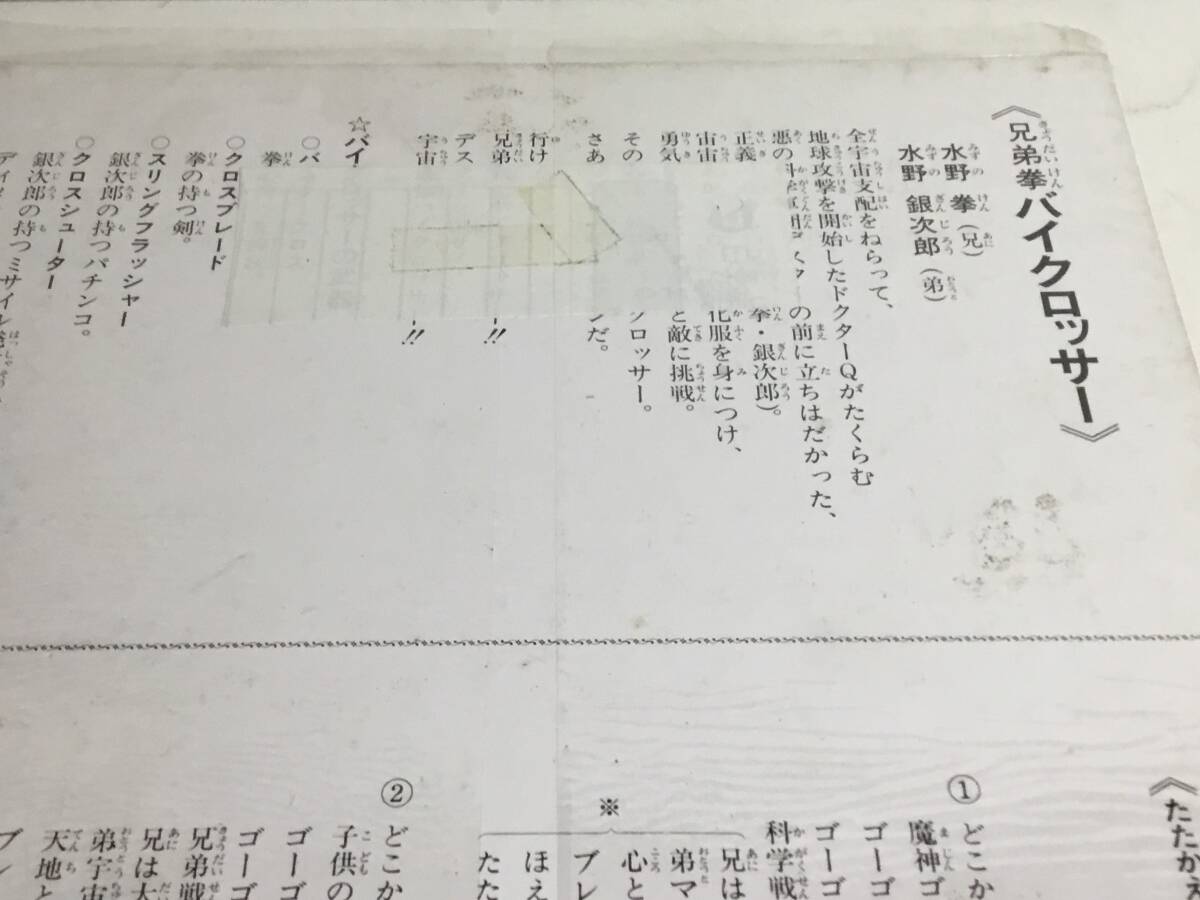 《兄弟拳バイクロッサー》
水野 拳(兄)
水野 銀次郎(弟)
全宇宙支配をねらって、
地球攻撃を開始したドクターQがたくらむ
悪の
の前に立ちはだかった、
正義
拳・銀次郎)。
宇宙
服を身につけ、
勇気
と敵に挑戦。
その
ロッサー。
さあ
だ。
行け
兄弟
!!
デス
宇宙
!!
☆バイ
○バ
拳
○クロスブレード
拳の持つ剣。
○スリングフラッシャー
銀次郎の持つパチンコ。
○クロスシューター
銀次郎の持つミサイル
ディ
《たたかえ
①
どこか
魔神ゴ
ゴーゴ
ゴーゴ
科学戦
※
兄は
弟マ
心と
ブレ
ほえ
たた
②
どこか
子供の
ゴーゴ
ゴーゴ
兄弟戦
兄は大
弟宇宙
天地と
ブレ